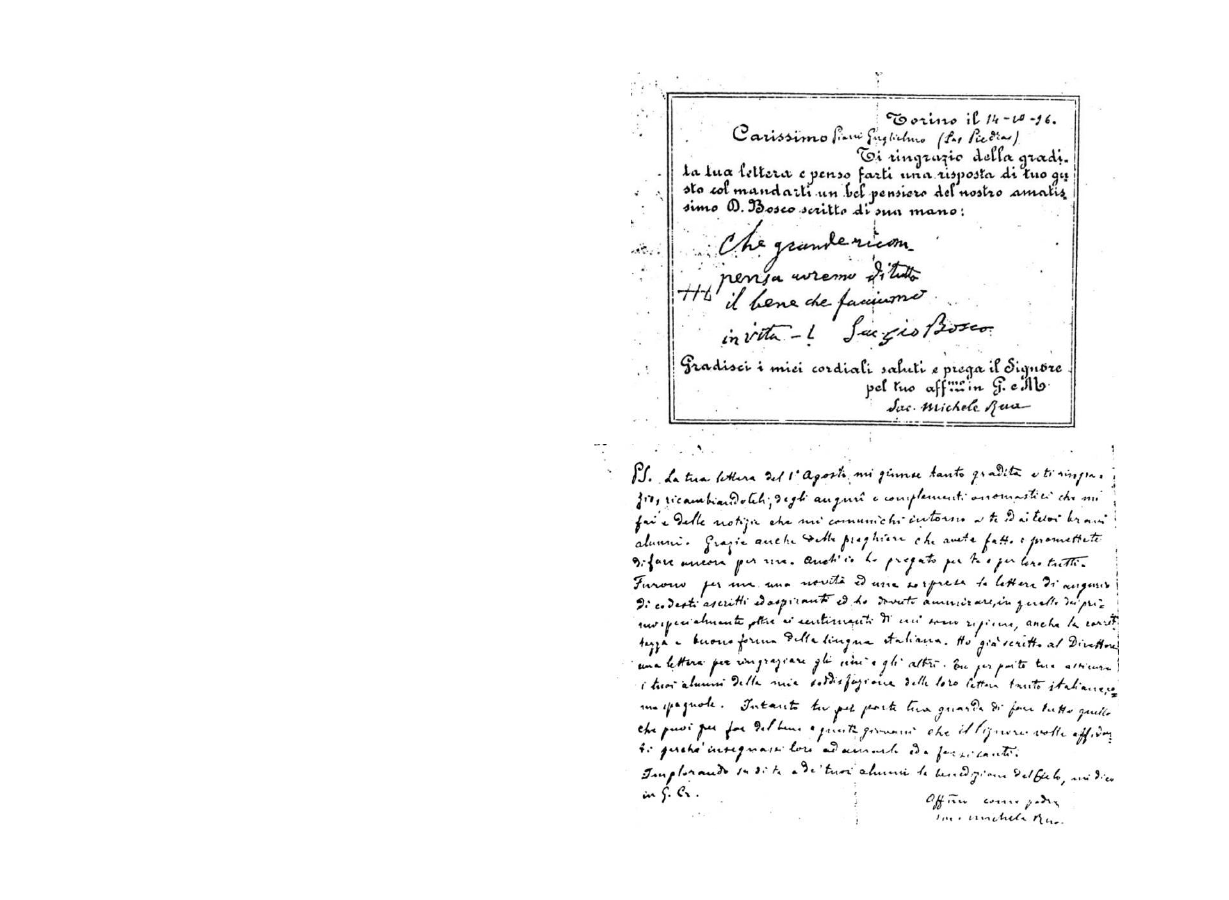 Torino il 14-10-96.
Carissimo Piani Guglielmo (Las Piedras)
Ti ringrazio della gradi-
ta tua lettera e penso farti una risposta di tuo gu
sto col mandarti un bel pensiero del nostro amatis
simo D. Bosco scritto di sua mano:
Che grande ricom-
pensa avremo di tutto
il bene che facciamo
in vita - ! Sac. Gio Bosco
Gradisci i miei cordiali saluti e prega il Signore
pel tuo aff.mo in G. e M
Sac. Michele Rua
PS. La tua lettera del 1° Agosto mi giunse tanto gradita e ti ringra-
zio, ricambiandoteli, degli augurî e complimenti onomastici che mi
fai e delle notizie che mi comunichi intorno a te ed ai tuoi bravi
alunni. Grazie anche delle preghiere che avete fatto e promettete
di fare ancora per me. Anch'io ho pregato per te e per loro tutti.
Furono per me una novità ed una sorpresa le lettere di augurio
di codesti ascritti ed aspiranti ed ho dovuto ammirare, in quelle dei pri-
mi specialmente, oltre ai sentimenti di cui sono ripiene, anche la corret
tezza e buona forma della lingua italiana. Ho già scritto al Direttore
una lettera per ringraziare gli uni e gli altri. Tu per parte tua assicura
i tuoi alunni della mia soddisfazione delle loro lettere tanto italiane, co-
me spagnole. Intanto tu per parte tua guarda di fare tutto quello
che puoi per far del bene a questi giovani che il Signore volle affidar
ti perchè insegnassi loro ad amarlo ed a farsi santi.
Implorando su di te e de' tuoi alunni la benedizione del Cielo, mi dico
in G. C.
Aff.mo come padre
Sac. Michele Rua